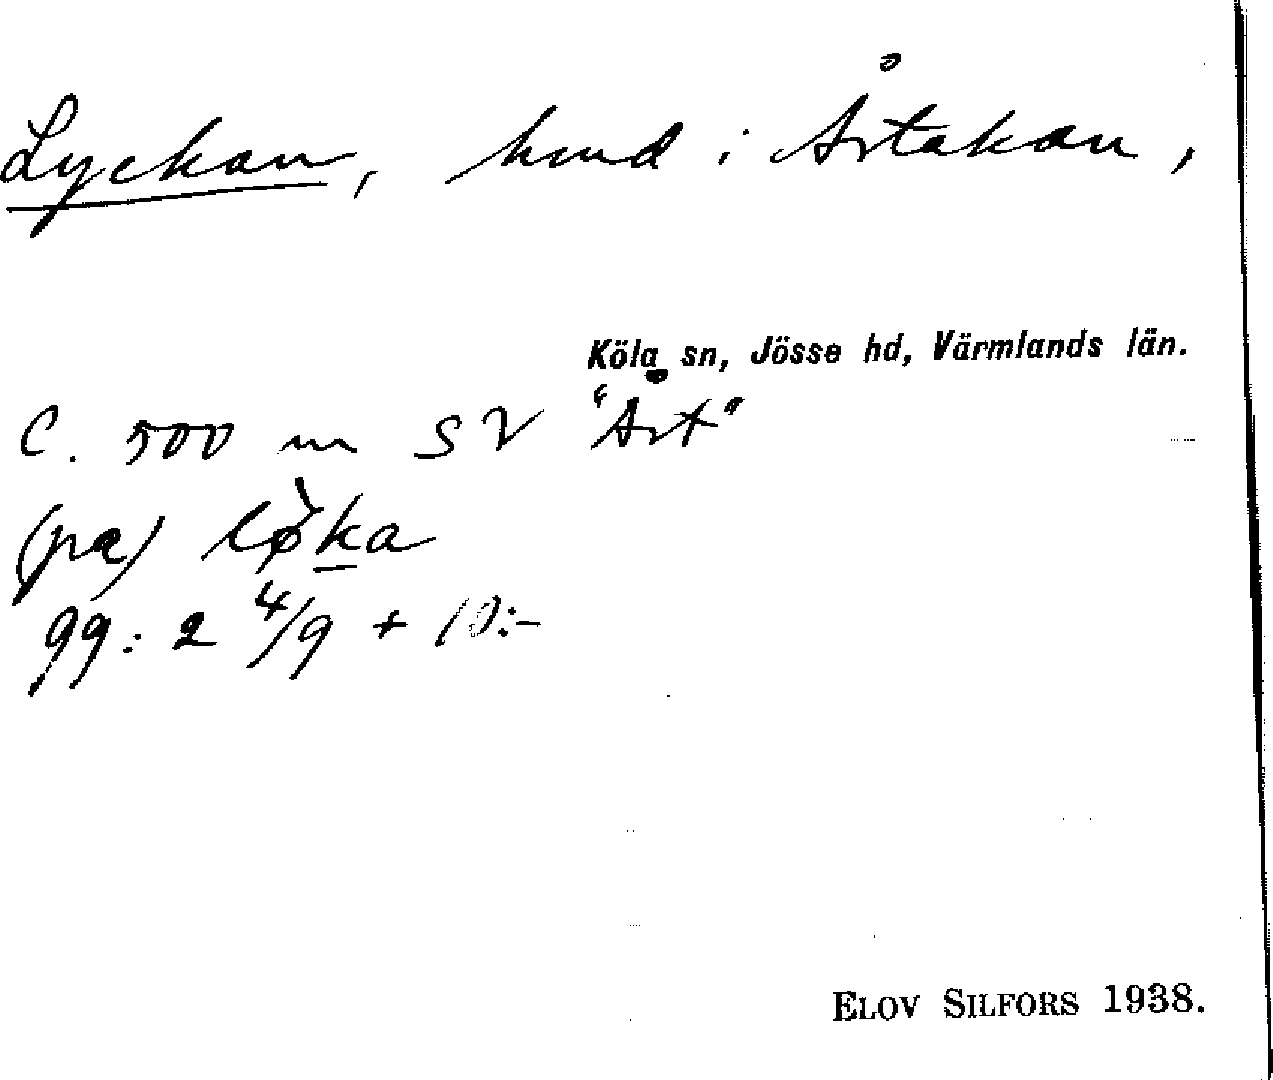 Lyckan, hmd i Årtakan,
Köla sn, Jösse hd, Värmlands län.
C. 500 m SV "Årt"
(pa) lø̀ka
99: 2 4/9 + 10:-
ELOV SILFORS 1938.